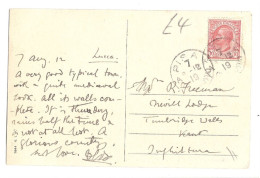 £4
7 Aug. 12 Lucca.
A very good typical town,
with a quite mediaeval
look. All its walls com-
plete. It is thundery,
nine half the time &
not at all hot. A
glorious country.
best love.
PISA
7
12
R. Freeman
Nevill Lodge
Tunbridge Wells
Kent
Inghilterra